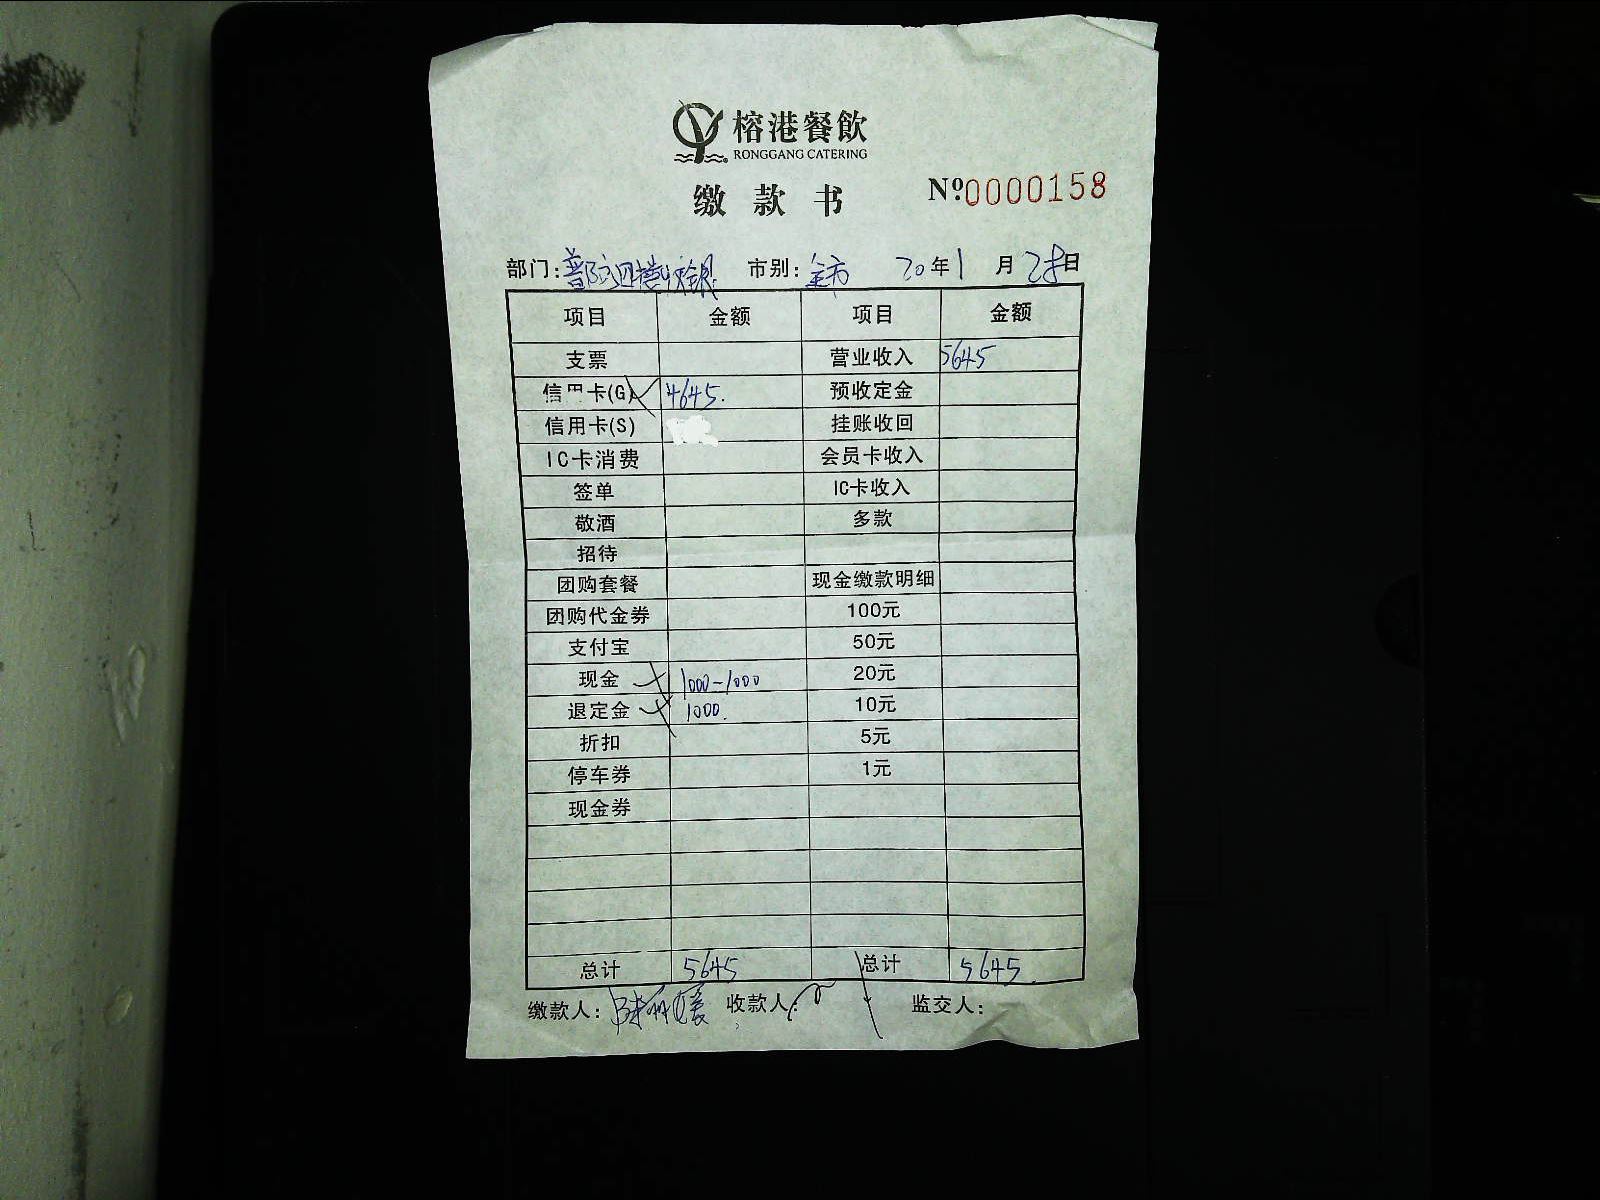 榕港餐飲
RONGGANG CATERING
缴款书 №0000158
部门: 市别:全市 20年1月28日
项目 金额 项目 金额
支票 营业收入 5645
信用卡(G) 4645. 预收定金
信用卡(S) 挂账收回
IC卡消费 会员卡收入
签单 IC卡收入
敬酒 多款
招待
团购套餐 现金缴款明细
团购代金券 100元
支付宝 50元
现金 1000-1000 20元
退定金 1000. 10元
折扣 5元
停车券 1元
现金券
总计 5645 总计 5645.
缴款人: 收款人: 监交人: